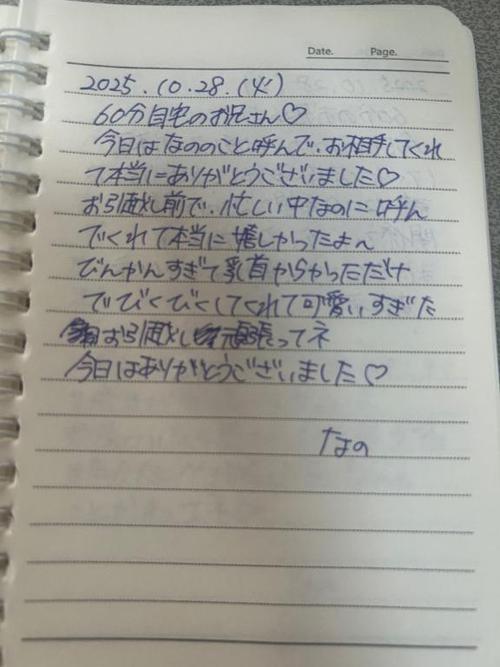 Date. Page.
2025.10.28.(火)
60分自宅のお兄さん♡
今日はなののこと呼んで、お相手してくれ
て本当にありがとうございました♡
お引越し前で、忙しい中なのに呼ん
でくれて本当に嬉しかったよ〜
びんかんすぎて乳首からかっただけ
でびくびくしてくれて可愛いすぎた
お引越し頑張ってネ
今日はありがとうございました♡
なの